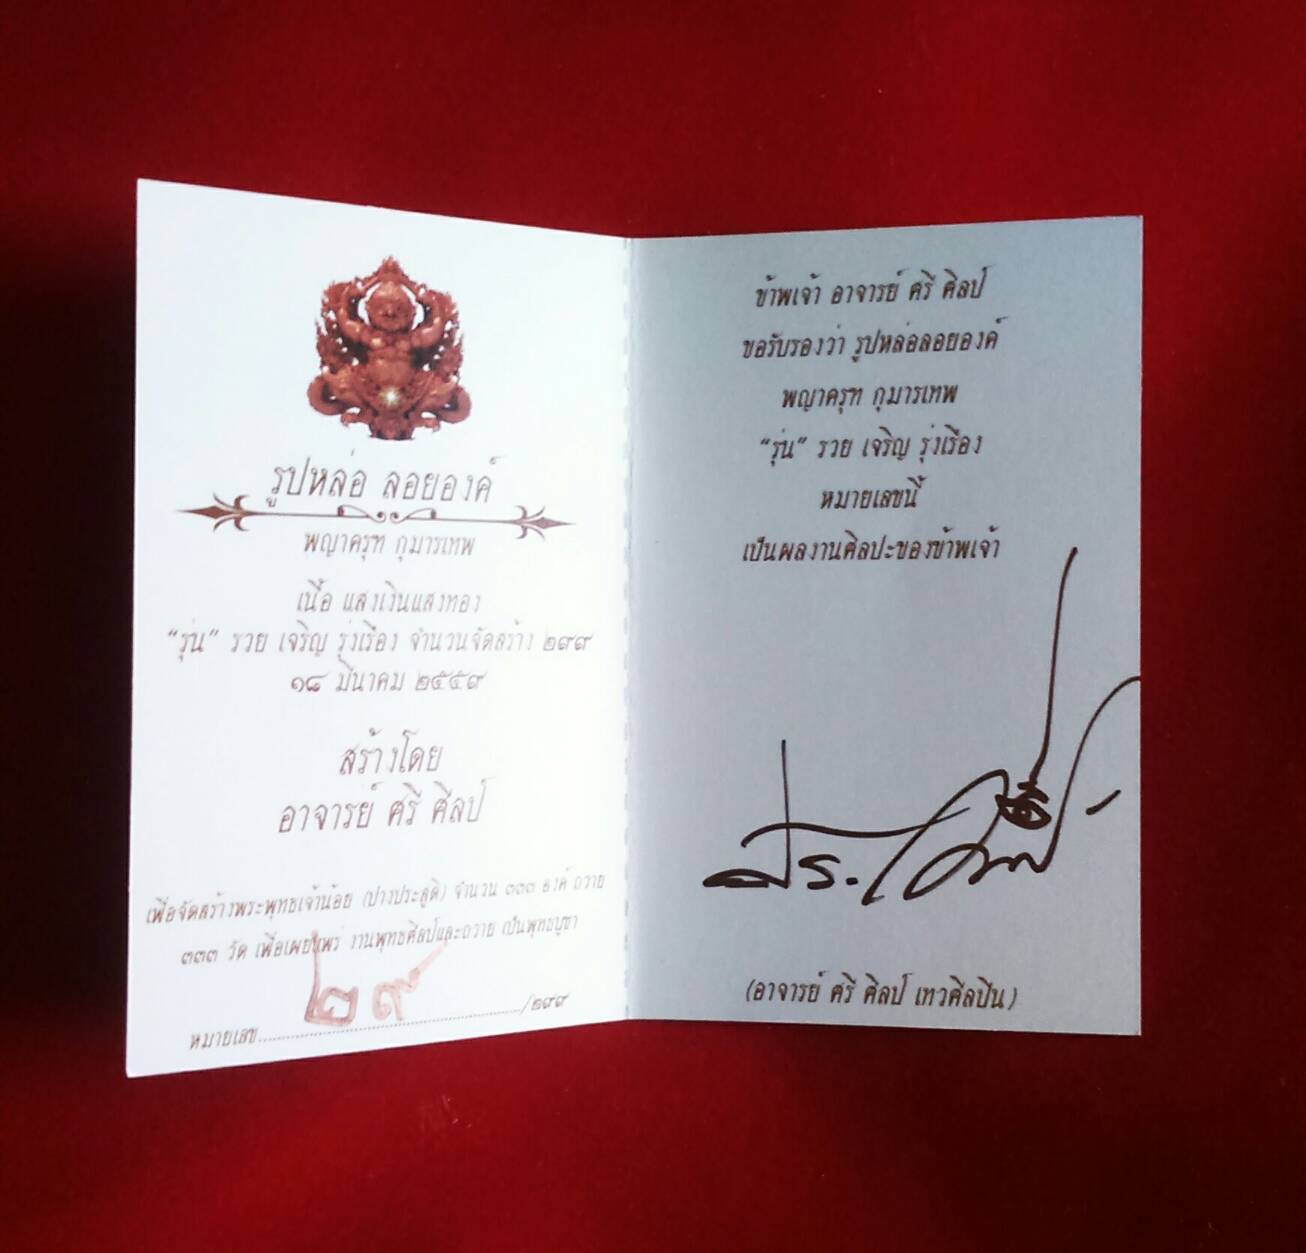 รูปหล่อ ลอยองค์
พญาครุฑ กุมารเทพ
เนื้อ แสงเงินแสงทอง
“รุ่น” รวย เจริญ รุ่งเรือง จำนวนจัดสร้าง ๒๙๙
๑๘ มีนาคม ๒๕๕๙
สร้างโดย
อาจารย์ ศรี ศิลป์
เพื่อจัดสร้างพระพุทธเจ้าน้อย (ปางประสูติ) จำนวน ๓๓๓ องค์ ถวาย
๓๓๓ วัด เพื่อเผยแพร่ งานพุทธศิลป์และถวาย เป็นพุทธบูชา
หมายเลข ๒๙ /๒๙๙
ข้าพเจ้า อาจารย์ ศรี ศิลป์
ขอรับรองว่า รูปหล่อลอยองค์
พญาครุฑ กุมารเทพ
“รุ่น” รวย เจริญ รุ่งเรือง
หมายเลขนี้
เป็นผลงานศิลปะของข้าพเจ้า
(อาจารย์ ศรี ศิลป์ เทวศิลปิน)